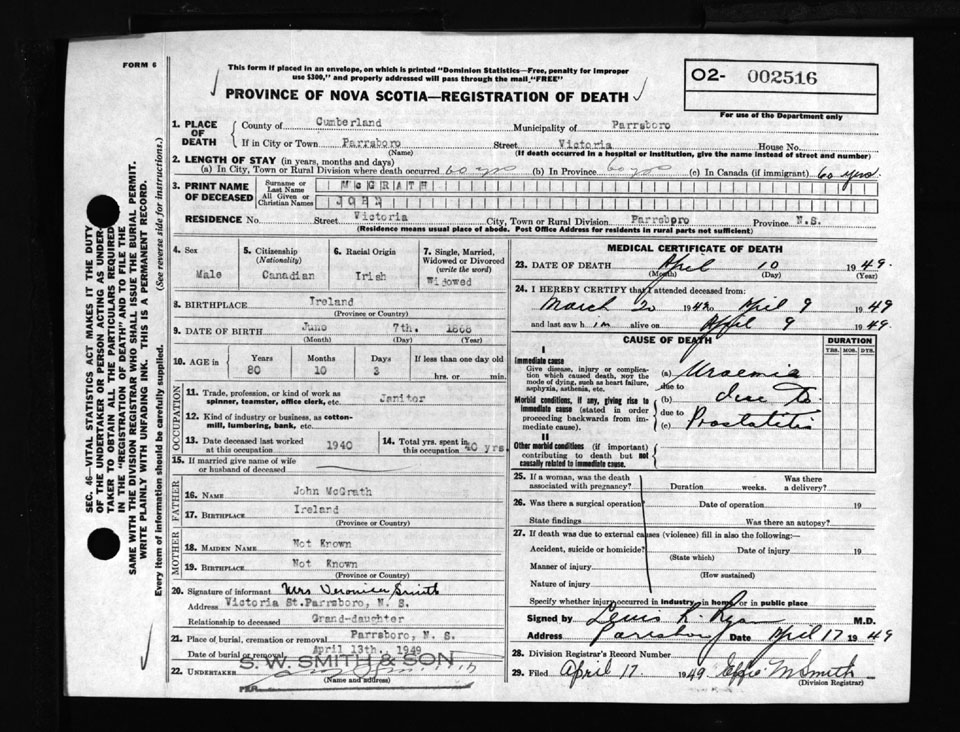 FORM 6
This form if placed in an envelope, on which is printed "Dominion Statistics—Free, penalty for improper
use $300," and properly addressed will pass through the mail "FREE"
PROVINCE OF NOVA SCOTIA—REGISTRATION OF DEATH
O2- 002516
For use of the Department only
SEC. 46—VITAL STATISTICS ACT MAKES IT THE DUTY
OF THE UNDERTAKER OR PERSON ACTING AS UNDER-
TAKER TO OBTAIN ALL THE PARTICULARS REQUIRED
IN THE "REGISTRATION OF DEATH" AND TO FILE THE
SAME WITH THE DIVISION REGISTRAR WHO SHALL ISSUE THE BURIAL PERMIT.
WRITE PLAINLY WITH UNFADING INK. THIS IS A PERMANENT RECORD.
Every item of information should be carefully supplied. (See reverse side for instructions.)
1. PLACE OF DEATH County of Cumberland Municipality of Parrsboro
If in City or Town Parrsboro Street Victoria House No.
(Name) (If death occurred in a hospital or institution, give the name instead of street and number)
2. LENGTH OF STAY (in years, months and days)
(a) In City, Town or Rural Division where death occurred 60 yrs (b) In Province 60 yrs (c) In Canada (if immigrant) 60 yrs.
3. PRINT NAME OF DECEASED Surname or Last Name McGRATH
All Given or Christian Names JOHN
RESIDENCE No. Street Victoria City, Town or Rural Division Parrsboro Province N.S.
(Residence means usual place of abode. Post Office Address for residents in rural parts not sufficient)
4. Sex Male
5. Citizenship (Nationality) Canadian
6. Racial Origin Irish
7. Single, Married, Widowed or Divorced (write the word) Widowed
8. BIRTHPLACE Ireland
(Province or Country)
9. DATE OF BIRTH June 7th. 1868
(Month) (Day) (Year)
10. AGE in Years 80 Months 10 Days 3 If less than one day old hrs. or min.
OCCUPATION
11. Trade, profession, or kind of work as spinner, teamster, office clerk, etc. Janitor
12. Kind of industry or business, as cotton-mill, lumbering, bank, etc.
13. Date deceased last worked at this occupation 1940
14. Total yrs. spent in this occupation 40 yrs.
15. If married give name of wife or husband of deceased
FATHER
16. NAME John McGrath
17. BIRTHPLACE Ireland
(Province or Country)
MOTHER
18. MAIDEN NAME Not Known
19. BIRTHPLACE Not Known
(Province or Country)
20. Signature of informant Mrs Veronica Smith
Address Victoria St. Parrsboro, N. S.
Relationship to deceased Grand-daughter
21. Place of burial, cremation or removal Parrsboro, N. S.
Date of burial or removal April 13th. 1949
22. UNDERTAKER S. W. SMITH & SON
(Name and address)
PER
MEDICAL CERTIFICATE OF DEATH
23. DATE OF DEATH April 10 1949.
(Month) (Day) (Year)
24. I HEREBY CERTIFY that I attended deceased from:
March 20 1949 to April 9 1949
and last saw him alive on April 9 1949.
CAUSE OF DEATH DURATION
YRS. MOS. DYS.
I
Immediate cause
Give disease, injury or complication which caused death, not the mode of dying, such as heart failure, asphyxia, asthenia, etc.
(a) Uraemia
due to
Morbid conditions, if any, giving rise to immediate cause (stated in order proceeding backwards from immediate cause).
(b) due to
due to
(c) Prostatitis
II
Other morbid conditions (if important) contributing to death but not causally related to immediate cause.
25. If a woman, was the death associated with pregnancy? Duration weeks. Was there a delivery?
26. Was there a surgical operation Date of operation 19
State findings Was there an autopsy?
27. If death was due to external causes (violence) fill in also the following:—
Accident, suicide or homicide? Date of injury 19
(State which)
Manner of injury
(How sustained)
Nature of injury
Specify whether injury occurred in industry in home or in public place
Signed by Lewis R. Ryan M.D.
Address Parrsboro Date April 17 1949
28. Division Registrar's Record Number
29. Filed April 17 1949 Effie M Smith
(Division Registrar)